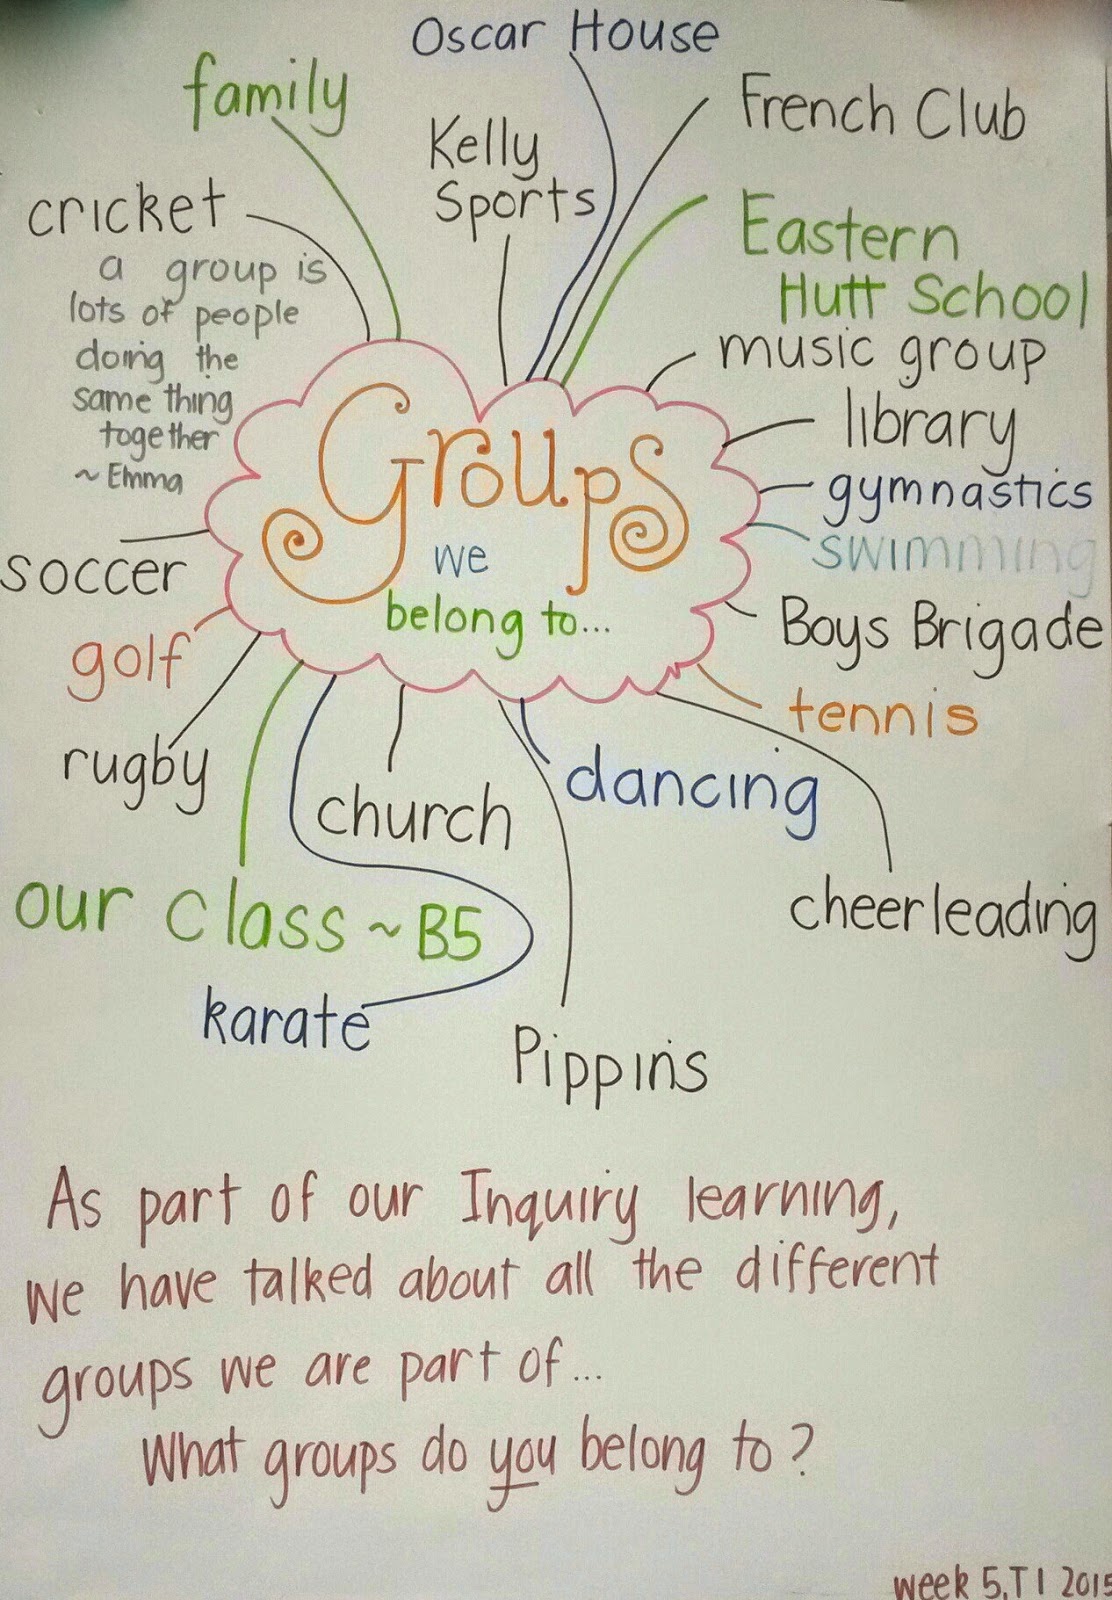 Oscar House
family
French Club
Kelly
Sports
cricket
Eastern
Hutt School
a group is
lots of people
doing the
same thing
together
~ Emma
music group
library
gymnastics
swimming
Groups
we
belong to...
soccer
Boys Brigade
golf
tennis
rugby
dancing
church
cheerleading
our class ~ B5
karate
Pippins
As part of our Inquiry learning,
we have talked about all the different
groups we are part of...
What groups do you belong to?
week 5, T1 2015